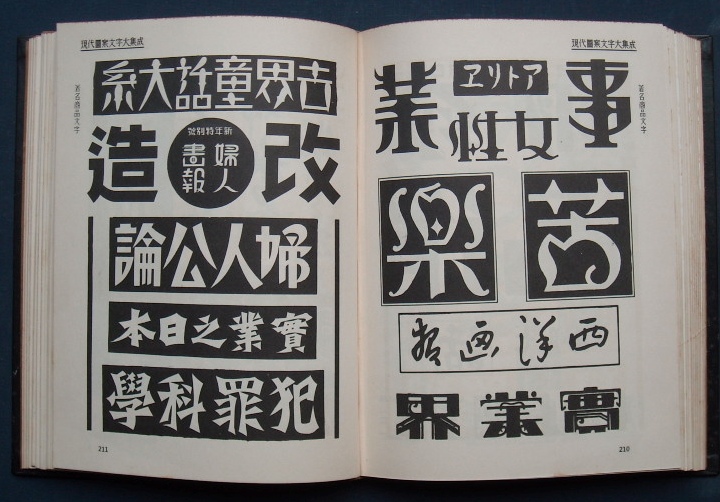 現代圖案文字大集成
著名商品文字
事業
アトリヱ
女性
苦樂
西洋画
實業界
210
現代圖案文字大集成
著名商品文字
世界童話大系
改造
新年特別號
婦人
畫報
婦人公論
實業之日本
犯罪科學
211